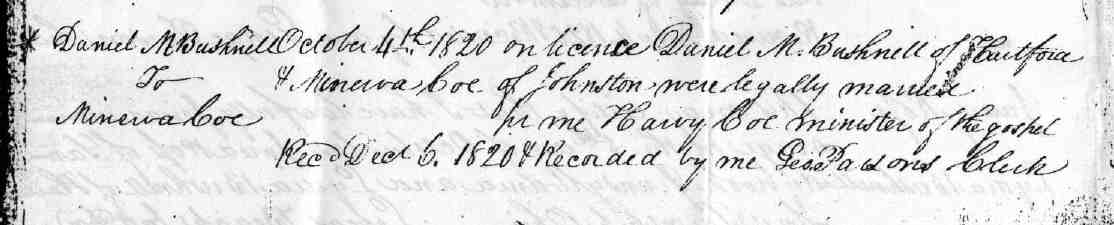 * Daniel M Bushnell October 4th 1820 on licence Daniel M. Bushnell of Hartford
To & Minerva Coe of Johnston were legally married
Minerva Coe pr me Harvy Coe minister of the gospel
Recd Dect 6. 1820 & Recorded by me Geo Parsons Clerk